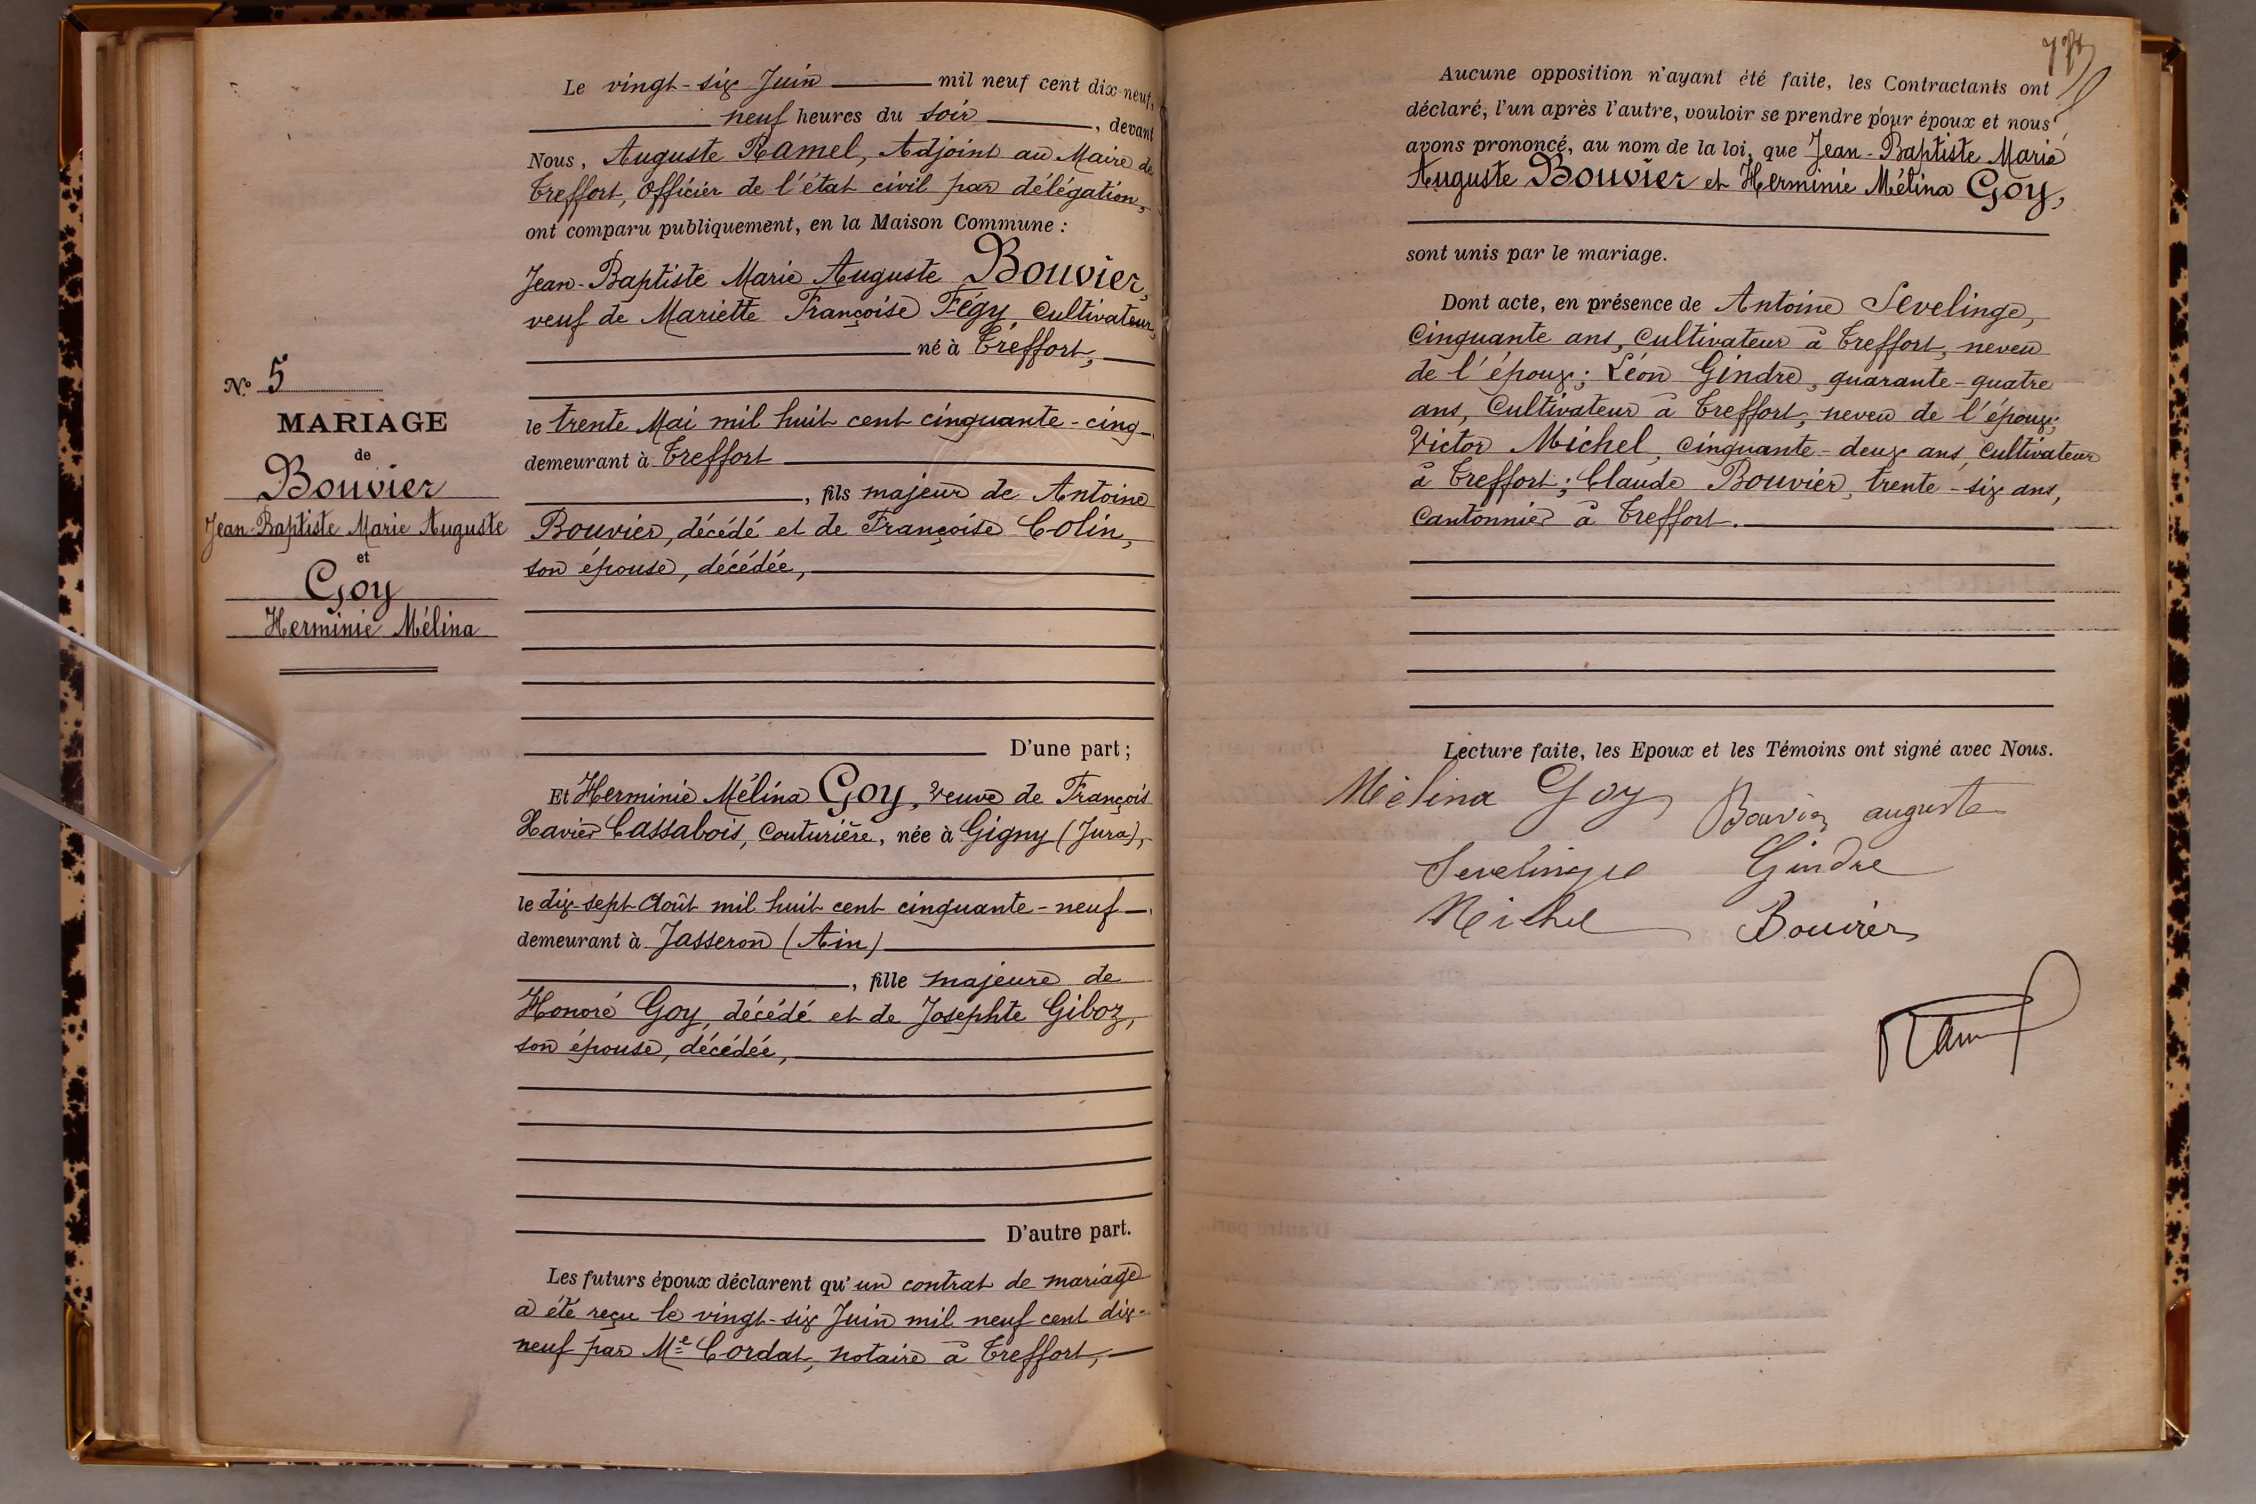 Nº 5
MARIAGE
de
Bouvier
Jean-Baptiste Marie Auguste
et
Goy
Herminie Mélina
Le vingt-six Juin mil neuf cent dix-neuf,
neuf heures du soir, devant
Nous, Auguste Ramel, Adjoint au Maire de
Treffort, Officier de l'état civil par délégation,
ont comparu publiquement, en la Maison Commune :
Jean-Baptiste Marie Auguste Bouvier,
veuf de Mariette Françoise Fégy, cultivateur,
né à Treffort,
le trente Mai mil huit cent cinquante-cinq
demeurant à Treffort
, fils majeur de Antoine
Bouvier, décédé et de Françoise Colin,
son épouse, décédée,
D'une part ;
Et Herminie Mélina Goy, veuve de François
Xavier Cassabois, couturière, née à Gigny (Jura),
le dix-sept Août mil huit cent cinquante-neuf
demeurant à Jasseron (Ain)
, fille majeure de
Honoré Goy, décédé et de Josephte Giboz,
son épouse, décédée,
D'autre part.
Les futurs époux déclarent qu'un contrat de mariage
a été reçu le vingt-six Juin mil neuf cent dix-
neuf par Me Cordat, notaire à Treffort,
Aucune opposition n'ayant été faite, les Contractants ont
déclaré, l'un après l'autre, vouloir se prendre pour époux et nous
avons prononcé, au nom de la loi, que Jean-Baptiste Marie
Auguste Bouvier et Herminie Mélina Goy,
sont unis par le mariage.
Dont acte, en présence de Antoine Sevelinge,
cinquante ans, cultivateur à Treffort, neveu
de l'époux ; Léon Gindre, quarante-quatre
ans, cultivateur à Treffort, neveu de l'époux ;
Victor Michel, cinquante-deux ans, cultivateur
à Treffort ; Claude Bouvier, trente-six ans,
cantonnier à Treffort.
Lecture faite, les Epoux et les Témoins ont signé avec Nous.
Mélina Goy Bouvier auguste
Sevelinge Gindre
Michel Bouvier
Ramel